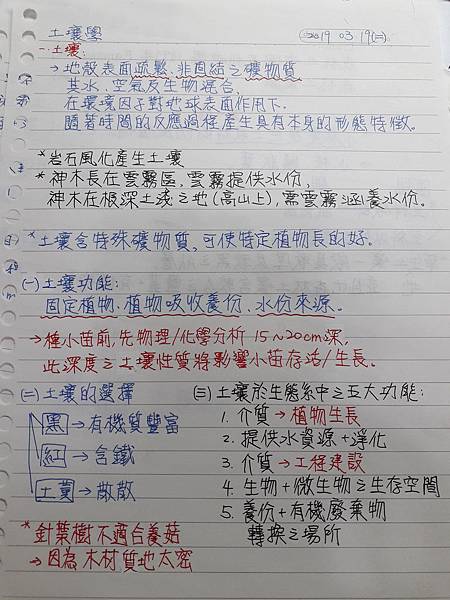 土壤學
2019 03.19(二)
一.土壤:
→地殼表面疏鬆、非固結之礦物質
其水、空氣及生物混合,
在環境因子對地球表面作用下.
隨著時間的反應過程產生具有本身的形態特徵.
*岩石風化產生土壤
*神木長在雲霧區,雲霧提供水份,
神木在根深土淺之地(高山上),需雲霧涵養水份.
*土壤含特殊礦物質,可使特定植物長的好.
(一)土壤功能:
固定植物、植物吸收養份、水份來源.
→種小苗前,先物理/化學分析15~20cm深,
此深度之土壤性質將影響小苗存活/生長.
(二)土壤的選擇
黑→有機質豐富
紅→含鐵
土黃→鬆散
*針葉樹不適合養菇
→因為木材質地太密
(三)土壤於生態系中之五大功能:
1.介質→植物生長
2.提供水資源+淨化
3.介質→工程建設
4.生物+微生物之生存空間
5.養份+有機廢棄物
轉換之場所